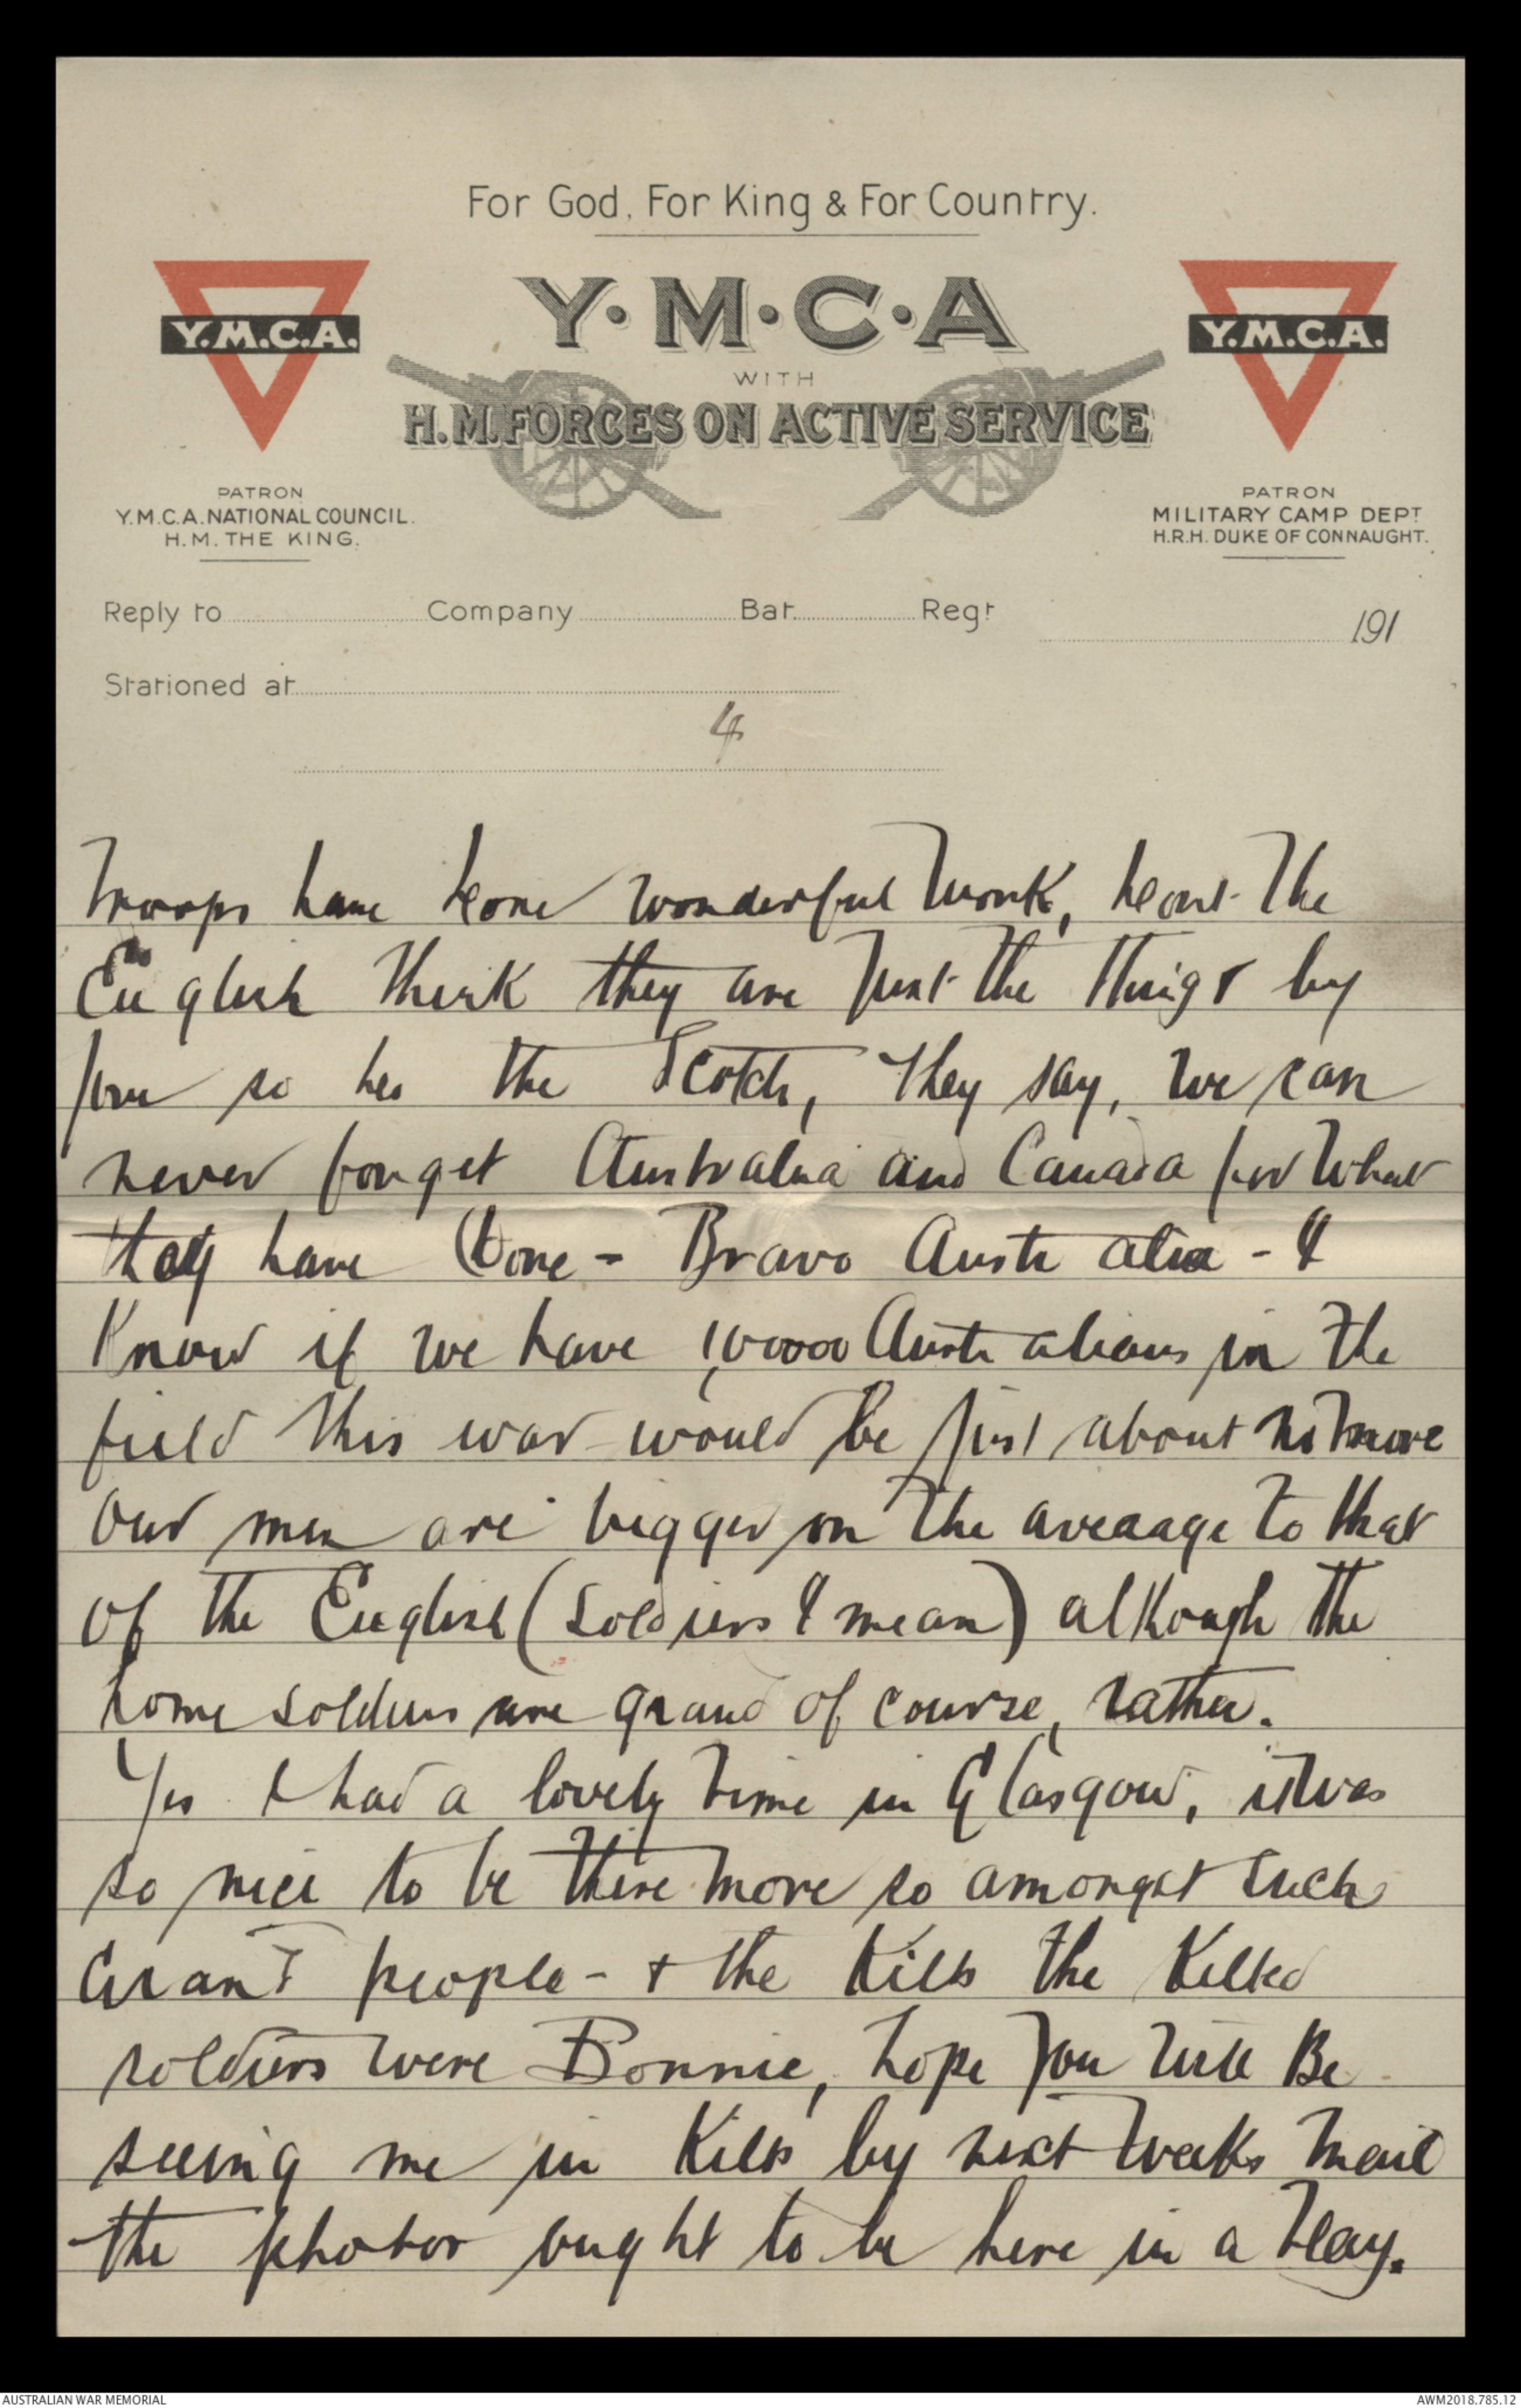 For God, For King & For Country.
Y.M.C.A.
Y·M·C·A
Y.M.C.A.
WITH
H.M. FORCES ON ACTIVE SERVICE
PATRON
Y.M.C.A. NATIONAL COUNCIL.
H.M. THE KING.
PATRON
MILITARY CAMP DEPT
H.R.H. DUKE OF CONNAUGHT.
Reply to Company Bat. Regt 191
Stationed at
4
troops have done wonderful work, the
English think they are just the things by
jove so do the Scotch, they say, we can
never forget Australia and Canada for what
they have done - Bravo Australia - I
know if we have Australians in the
field this war would be just about no more
our men are bigger on the aveaage to that
of the English (soldiers I mean) although the
home soldiers are grand of course, rather.
Yes I had a lovely time in Glasgow, it was
so nice to be there more so amongst such
Grand people - + the Kilts the Kilted
soldiers were Bonnie, hope you will Be
seeing me in Kilts by next weeks mail
the photos ought to be here in a day.
AUSTRALIAN WAR MEMORIAL
AWM2018.785.12